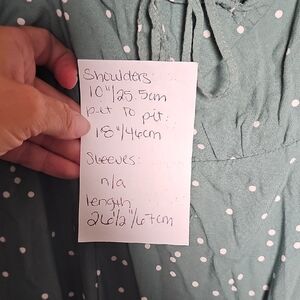 Shoulders:
10"/25.5cm
pit to pit:
18"/46cm
Sleeves:
n/a
length
26 1/2"/67cm